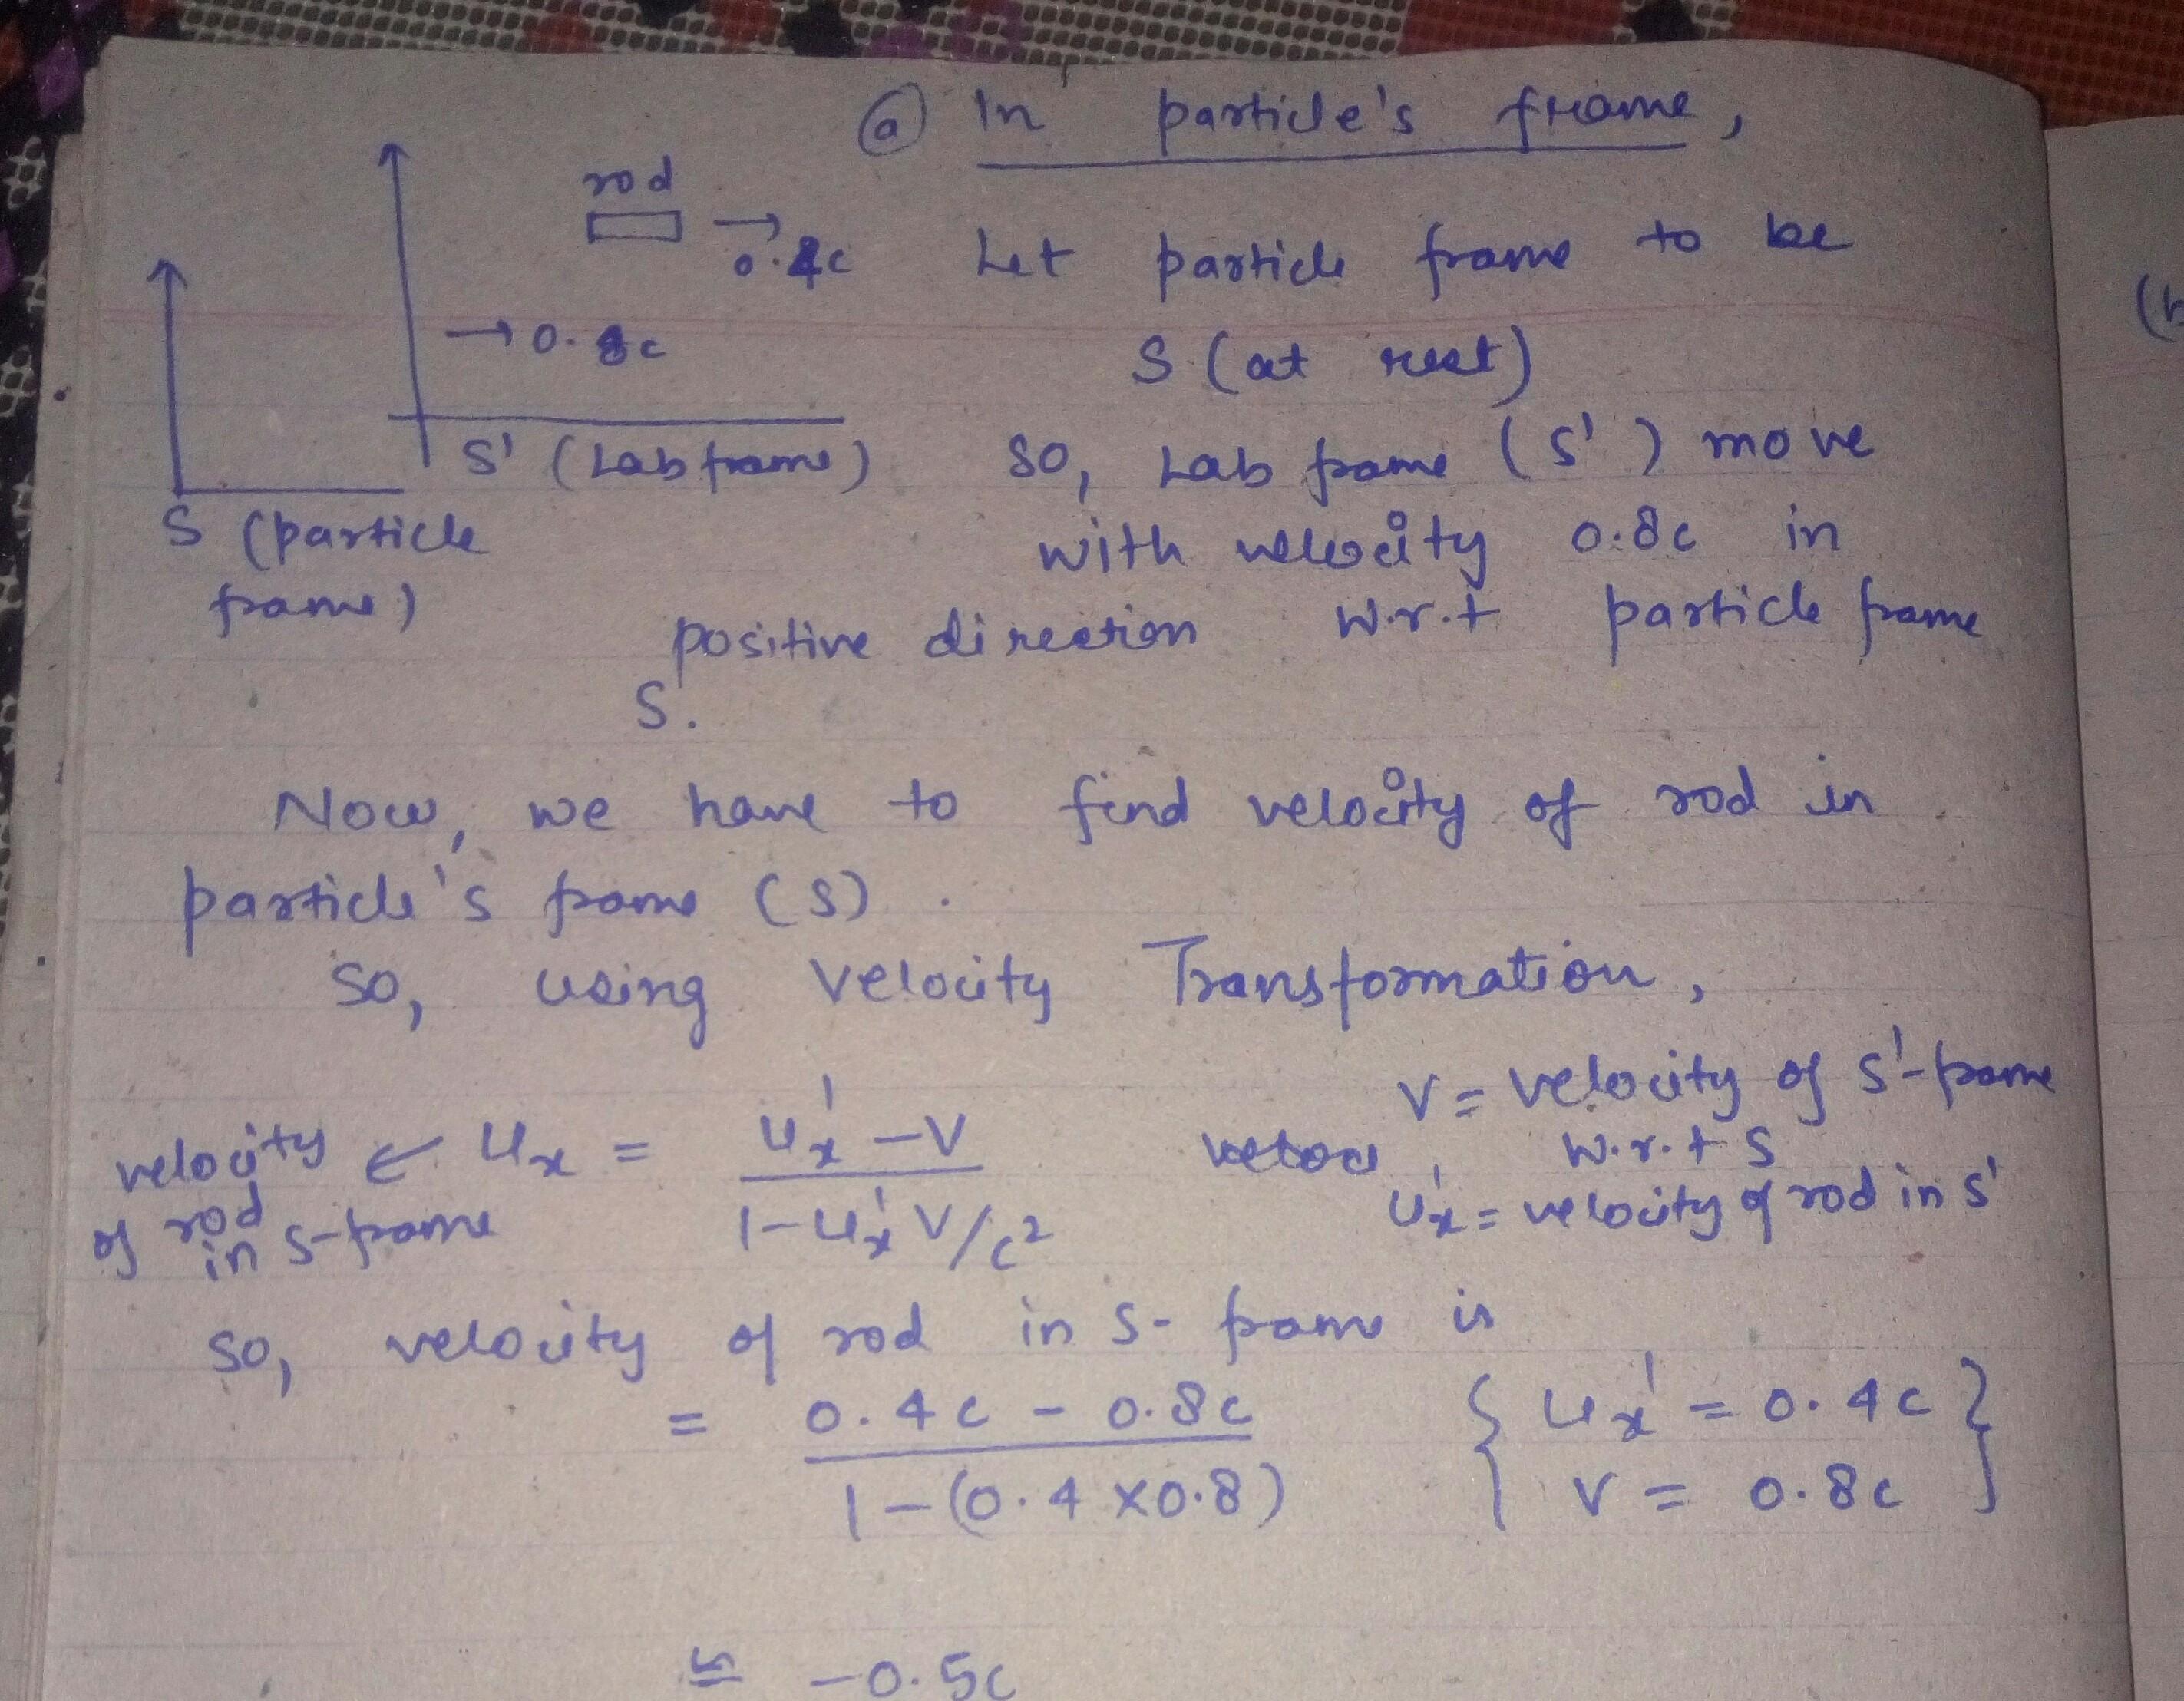 ⓐ In particle's frame,
rod
→
0.4c
Let particle frame to be
→ 0.8c
S (at rest)
S' (Lab frame)
so, Lab frame (S') move
S (particle
frame)
with velocity 0.8c in
positive direction w.r.t particle frame
S.
Now, we have to find velocity of rod in
particle's frame (S).
So, using Velocity Transformation,
velocity of rod in S-frame ← Ux = (U'x - V) / (1 - U'x V/c²)
V = velocity of S'-frame
w.r.t S
U'x = velocity of rod in S'
so, velocity of rod in S- frame is
= (0.4c - 0.8c) / (1 - (0.4 x 0.8))
{ U'x = 0.4c
V = 0.8c }
≌ -0.5c